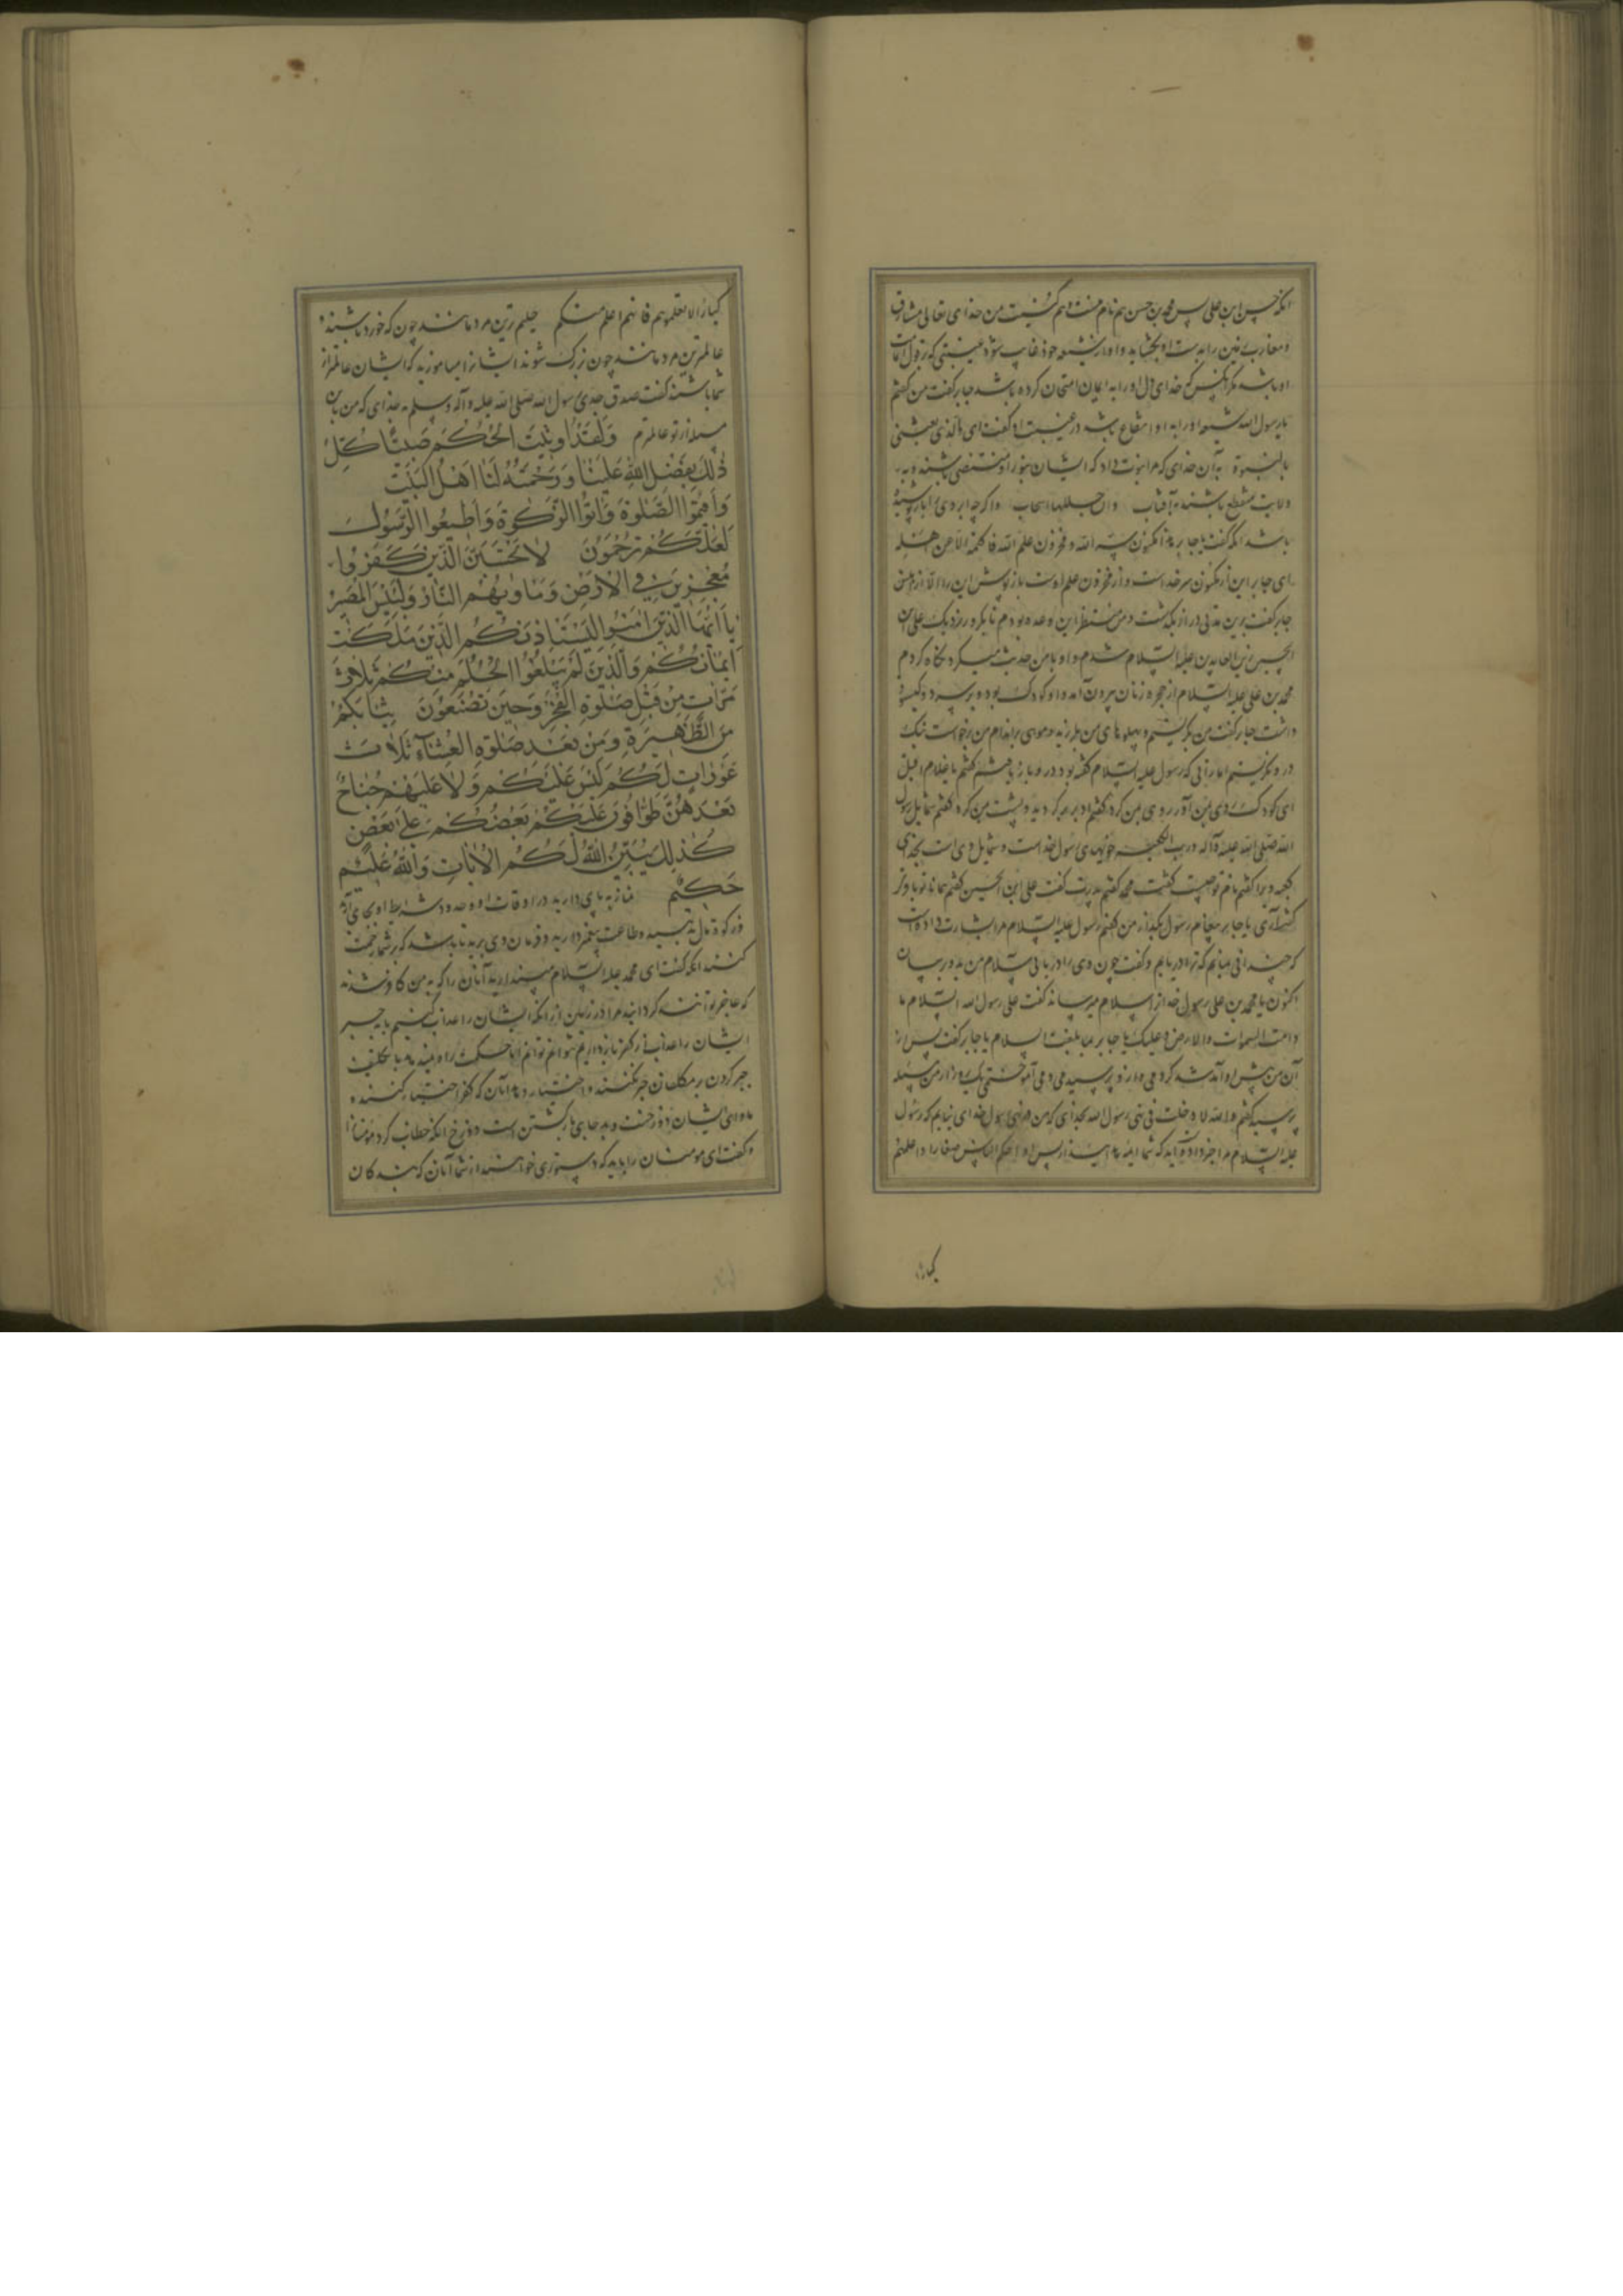 آنکه حسن ابن علی پس محمد بن حسن هم نام منست و هم کنیت من خدای تعالی مشارق
و مغارب زمین را بدست او بخشاید و او از شیعه خود غایب شود غیبتی که بر قول امامت
او باشد مگر آنکس که خدای دل او را به ایمان امتحان کرده باشد جابر گفت من گفتم
یا رسول الله شیعه او را به او انتفاع باشد در غیبت او گفت ای بالذی بعثنی
بالنبوة به آن خدای که مرا نبوت داد که ایشان بنور او مستضی باشند و به
ولایت منتفع باشند به آفتاب وان جللها سحاب و اگر چه ابر وی را باز پوشیده
باشد آنکه گفت یا جابر هذا مکنون سر الله و مخزون علم الله فاکتمه الا عن اهله
ای جابر این از مکنون سر خداست و از مخزون علم اوست باز پوش این را الا از اهلش
جابر گفت برین مدتی دراز بگذشت و من منتظر این وعده بودم تا یکروز نزدیک علی بن
الحسین زین العابدین علیه السلام شدم و او با من حدیث میکرد نگاه کردم
محمد بن علی علیه السلام از حجره زنان بیرون آمد و او کودک بود و بر سر دو گیسو
داشت جابر گفت من بنگریستم و پهلوهای من بلرزید و موی بر اندام من برخواست نیک
در و نگریستم امارتی که رسول علیه السلام گفته بود در و باز یافتم گفتم یا غلام اقبل
ای کودک روی بمن آور روی بمن کرد گفتم ادبر برگردید و پشت بمن کرد گفتم شمایل رسول
الله صلی الله علیه و آله و رب الکعبه خویهای رسول خداست و شمایل وی است بخدای
کعبه و برا گفتم نام تو چیست گفت محمد گفتم پدرت گفت علی ابن الحسین گفتم همانا تو باقر
گفت آری یا جابر پیغام رسول بگذار من گفتم رسول علیه السلام مرا بشارت داده است
که چندانی بمانم که ترا دریابم و گفت چون وی را دریابی سلام من بدو برسان
اکنون یا محمد بن علی رسول خدا ترا سلام میرساند گفت علی رسول الله السلام ما
دامت السموات والارض و علیک یا جابر بما بلغت السلام یا جابر گفت پس از
آن من پیش او آمد شد کردمی و از و پرسیدمی و می آموختمی یک روز از من مسئله
پرسید گفتم والله لا دخلت فی نهی رسول الله بخدای که من در نهی رسول خدای نیایم که رسول
علیه السلام مرا خبر داد و آید که شما ایمه هداه اید از پس او احکم الناس صغارا و اعلمهم
کبارا
کبارا لا تعلموهم فانهم اعلم منکم حلیم ترین مردمانند چون که خورد باشند و
عالمترین مردمانند چون بزرک شوند ایشانرا میاموزید که ایشان عالمتر از
شما باشند گفت صدق جدی رسول الله صلی الله علیه و آله و سلم به خدای که من باین
مسئله از تو عالمترم وَلَقَدْ اُوتِیتُ الْحُکْمَ صَبِیًّا کُلُّ
ذٰلِكَ بِفَضْلِ اللّٰهِ عَلَیْنَا وَرَحْمَتُهُ لَنَا اَهْلَ الْبَیْتِ
وَاَقِیمُوا الصَّلٰوةَ وَاٰتُوا الزَّکٰوةَ وَاَطِیعُوا الرَّسُولَ
لَعَلَّکُمْ تُرْحَمُونَ لَا تَحْسَبَنَّ الَّذِینَ کَفَرُوا
مُعْجِزِینَ فِی الْاَرْضِ وَمَاْوٰیهُمُ النَّارُ وَلَبِئْسَ الْمَصِیرُ
یَا اَیُّهَا الَّذِینَ اٰمَنُوا لِیَسْتَاْذِنْکُمُ الَّذِینَ مَلَکَتْ
اَیْمَانُکُمْ وَالَّذِینَ لَمْ یَبْلُغُوا الْحُلُمَ مِنْکُمْ ثَلَاثَ
مَرَّاتٍ مِنْ قَبْلِ صَلٰوةِ الْفَجْرِ وَحِینَ تَضَعُونَ ثِیَابَکُمْ
مِنَ الظَّهِیرَةِ وَمِنْ بَعْدِ صَلٰوةِ الْعِشَآءِ ثَلَاثُ
عَوْرَاتٍ لَکُمْ لَیْسَ عَلَیْکُمْ وَلَا عَلَیْهِمْ جُنَاحٌ
بَعْدَهُنَّ طَوَّافُونَ عَلَیْکُمْ بَعْضُکُمْ عَلٰی بَعْضٍ
کَذٰلِكَ یُبَیِّنُ اللّٰهُ لَکُمُ الْاٰیَاتِ وَاللّٰهُ عَلِیمٌ
حَکِیمٌ نماز به پای دارید در اوقات او و حدود و شرایط او بجای آرید
و زکوة مال بدهید و طاعت پیغمبر دارید و فرمان وی برید تا باشد که بر شما رحمت
کنند آنکه گفت ای محمد علیه السلام مپندارید آنان را که به من کافر شدند
که عاجز توانند کردانید مرا در زمین از آنکه ایشان را عذاب کنیم یا بجبر
ایشان را عذاب از کفر باز داریم توانم اما حکمت راه نمیدهد با تکلیف
جبر کردن بر مکلفان جبر نکنند و اختیار دهد آنان که کفر اختیار کنند و
ماوای ایشان دوزخست و بد جای بازگشتن است دوزخ آنکه خطاب کرد مومنانرا
و گفت ای مومنان باید که دستوری خواهند از شما آنان که بندکان